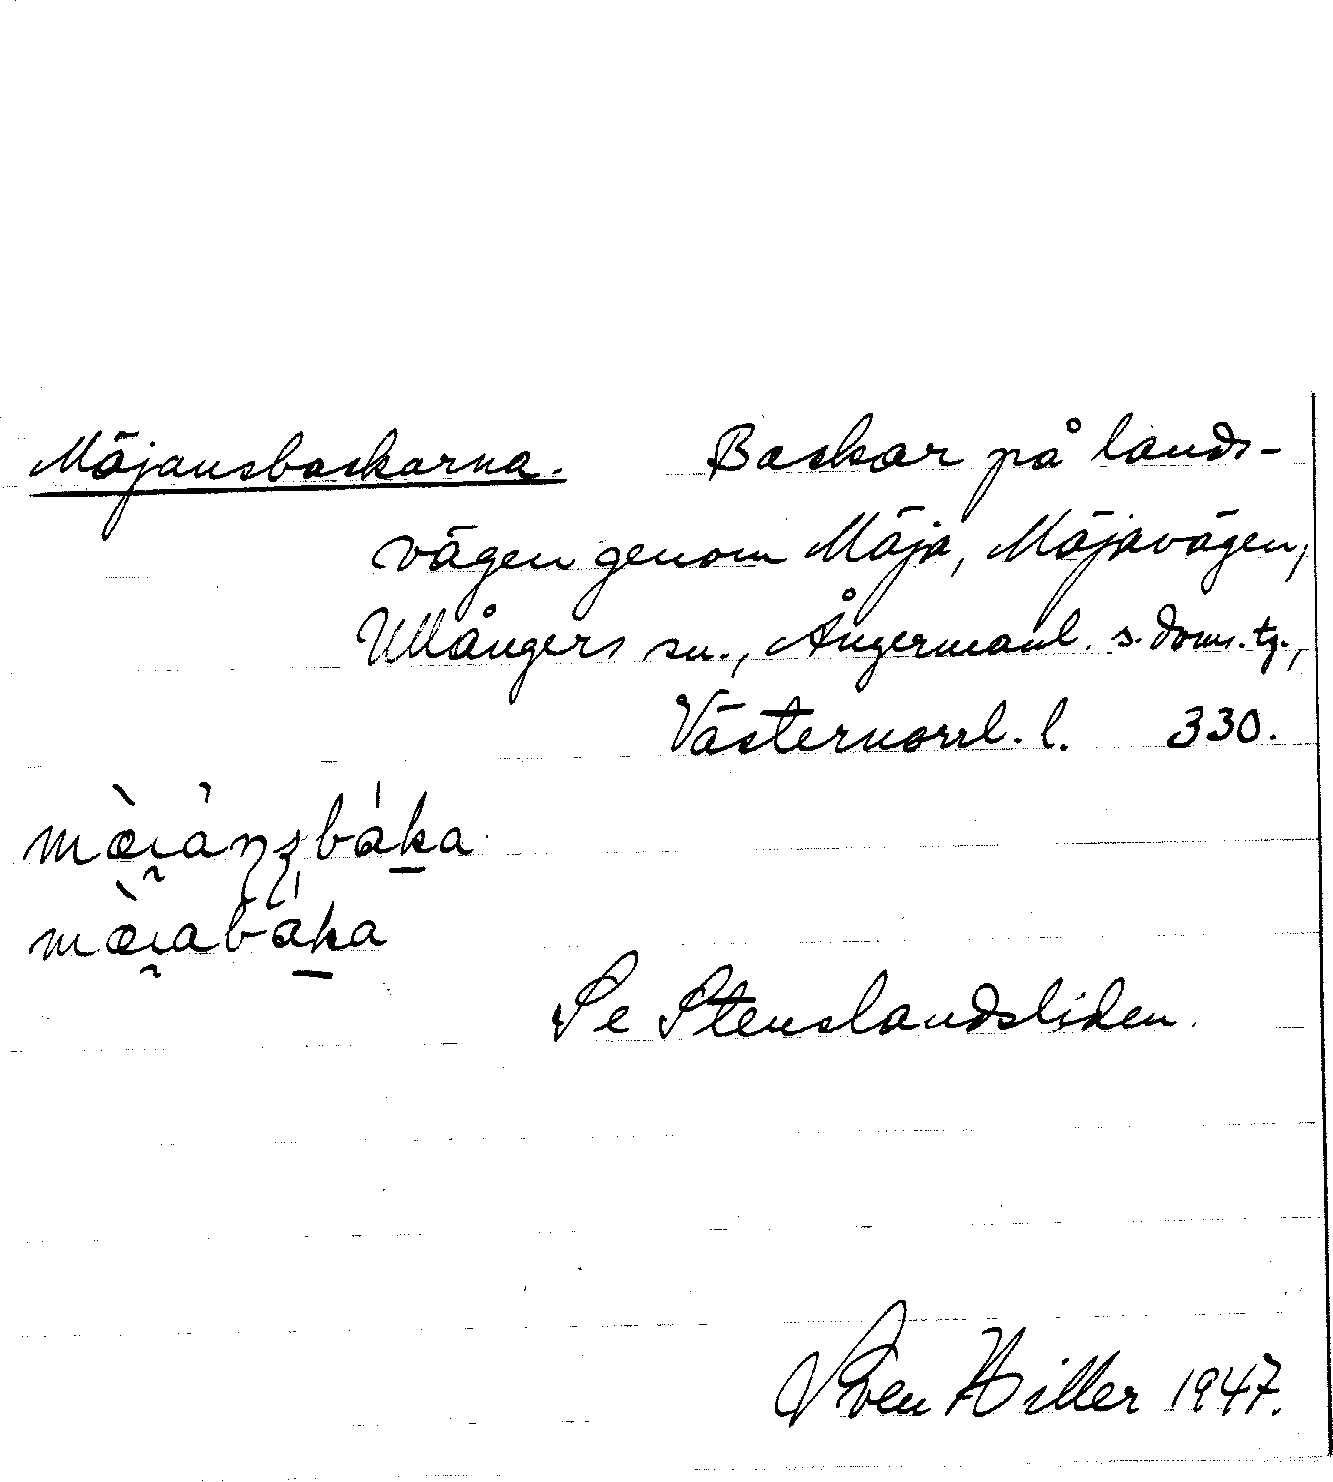 Mäjansbackarna. Backar på lands-
vägen genom Mäja, Mäjavägen,
Ullångers sn., Ångermanl. s. doms. tg.,
Västernorrl. l. 330.
Se Stenslandsliden.
Sven Hiller 1947.